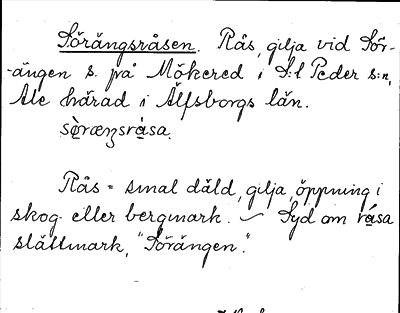 Sörängsråsen. Rås, gilja vid Sör-
-ängen s. på Mökered i S:t Peder s:n,
Ale härad i Älfsborgs län.
sö̀ræŋsråsa.
Rås = smal däld, gilja, öppning i
skog- eller bergmark. ~ Syd om råsa
slättmark, "Sörängen".